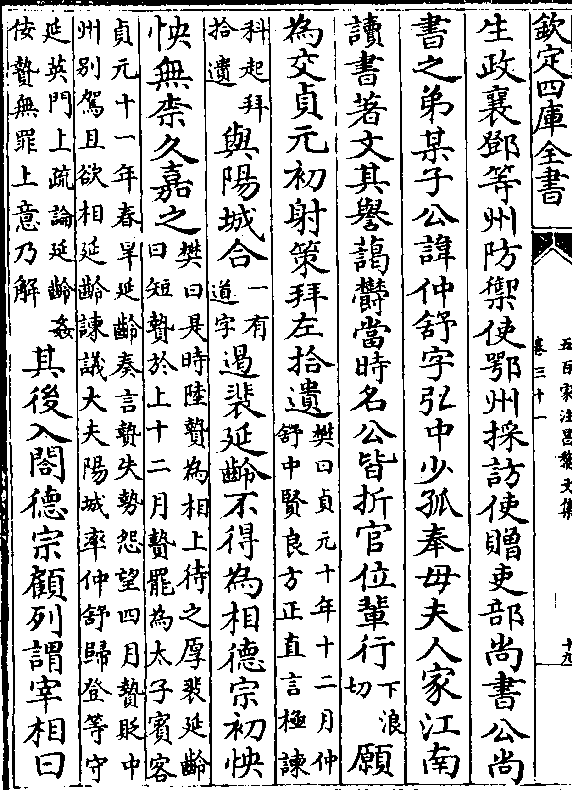 欽定四庫全書
五百家注昌黎文集
卷三十一
十九
生政襄鄧等州防禦使鄂州採訪使贈吏部尚書公尚
書之弟某子公諱仲舒字弘中少孤奉母夫人家江南
讀書著文其譽藹鬱當時名公皆折官位輩行下浪切願
為交貞元初射策拜左拾遺樊曰貞元十年十二月仲舒中賢良方正直言極諫
科起拜拾遺與陽城合一有道字遏裴延齡不得為相德宗初怏
怏無柰久嘉之樊曰是時陸贄為相上待之厚裴延齡日短贄於上十二月贄罷為太子賓客
貞元十一年春旱延齡奏言贄失勢怨望四月贄貶中州别駕且欲相延齡諫議大夫陽城率仲舒歸登等守
延英門上疏論延齡姦佞贄無罪上意乃解其後入閤德宗顧列謂宰相曰